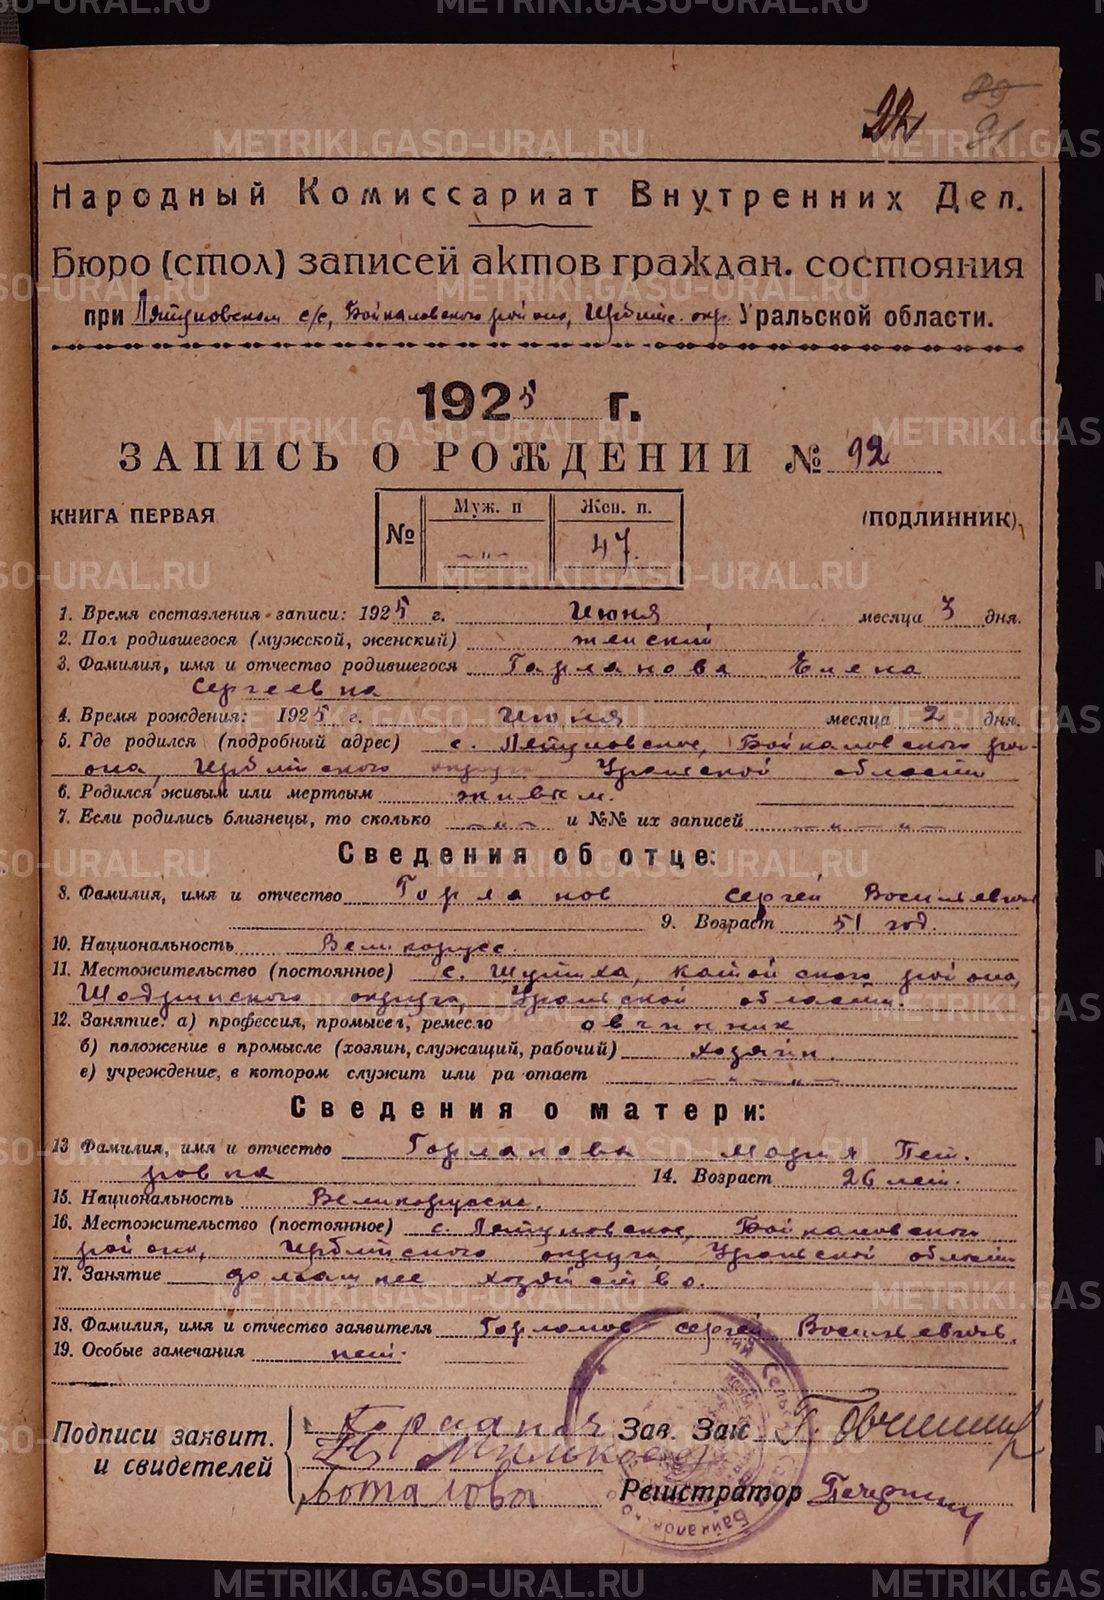 22
89
91
Народный Комиссариат Внутренних Дел.
Бюро (стол) записей актов граждан. состояния
при Ляпуновском с/с, Байкаловского района, Ирбитс. окр. Уральской области.
1925 г.
ЗАПИСЬ О РОЖДЕНИИ № 92
КНИГА ПЕРВАЯ
№
Муж. п
Жен. п.
— „ —
47.
(ПОДЛИННИК),
1. Время составления записи: 1925 г. Июня месяца 3 дня.
2. Пол родившегося (мужской, женский) женский
3. Фамилия, имя и отчество родившегося Горланова Елена
Сергеевна
4. Время рождения: 1925 г. Июня месяца 2 дня.
5. Где родился (подробный адрес) с. Ляпуновское, Байкаловского рай-
она, Ирбитского округа, Уральской области
6. Родился живым или мертвым живым.
7. Если родились близнецы, то сколько — „ — и №№ их записей — „ — „ —
Сведения об отце:
8. Фамилия, имя и отчество Горланов Сергей Васильевич
9. Возраст 51 год.
10. Национальность Великорусс.
11. Местожительство (постоянное) с. Шутиха, Катайского района,
Шадринского округа, Уральской области.
12. Занятие: а) профессия, промысел, ремесло овчинник
б) положение в промысле (хозяин, служащий, рабочий) хозяин.
в) учреждение, в котором служит или ра отает — „ — „ —
Сведения о матери:
13 Фамилия, имя и отчество Горланова Мария Пет-
ровна 14. Возраст 26 лет.
15. Национальность Великорусске.
16. Местожительство (постоянное) с. Ляпуновское, Байкаловского
района, Ирбитского округа, Уральской области
17. Занятие домашнее хозяйство.
18. Фамилия, имя и отчество заявителя Горланов Сергей Васильевич.
19. Особые замечания нет.
Подписи заявит.
и свидетелей
Зав. Загс
Регистратор
METRIKI.GASO-URAL.RU